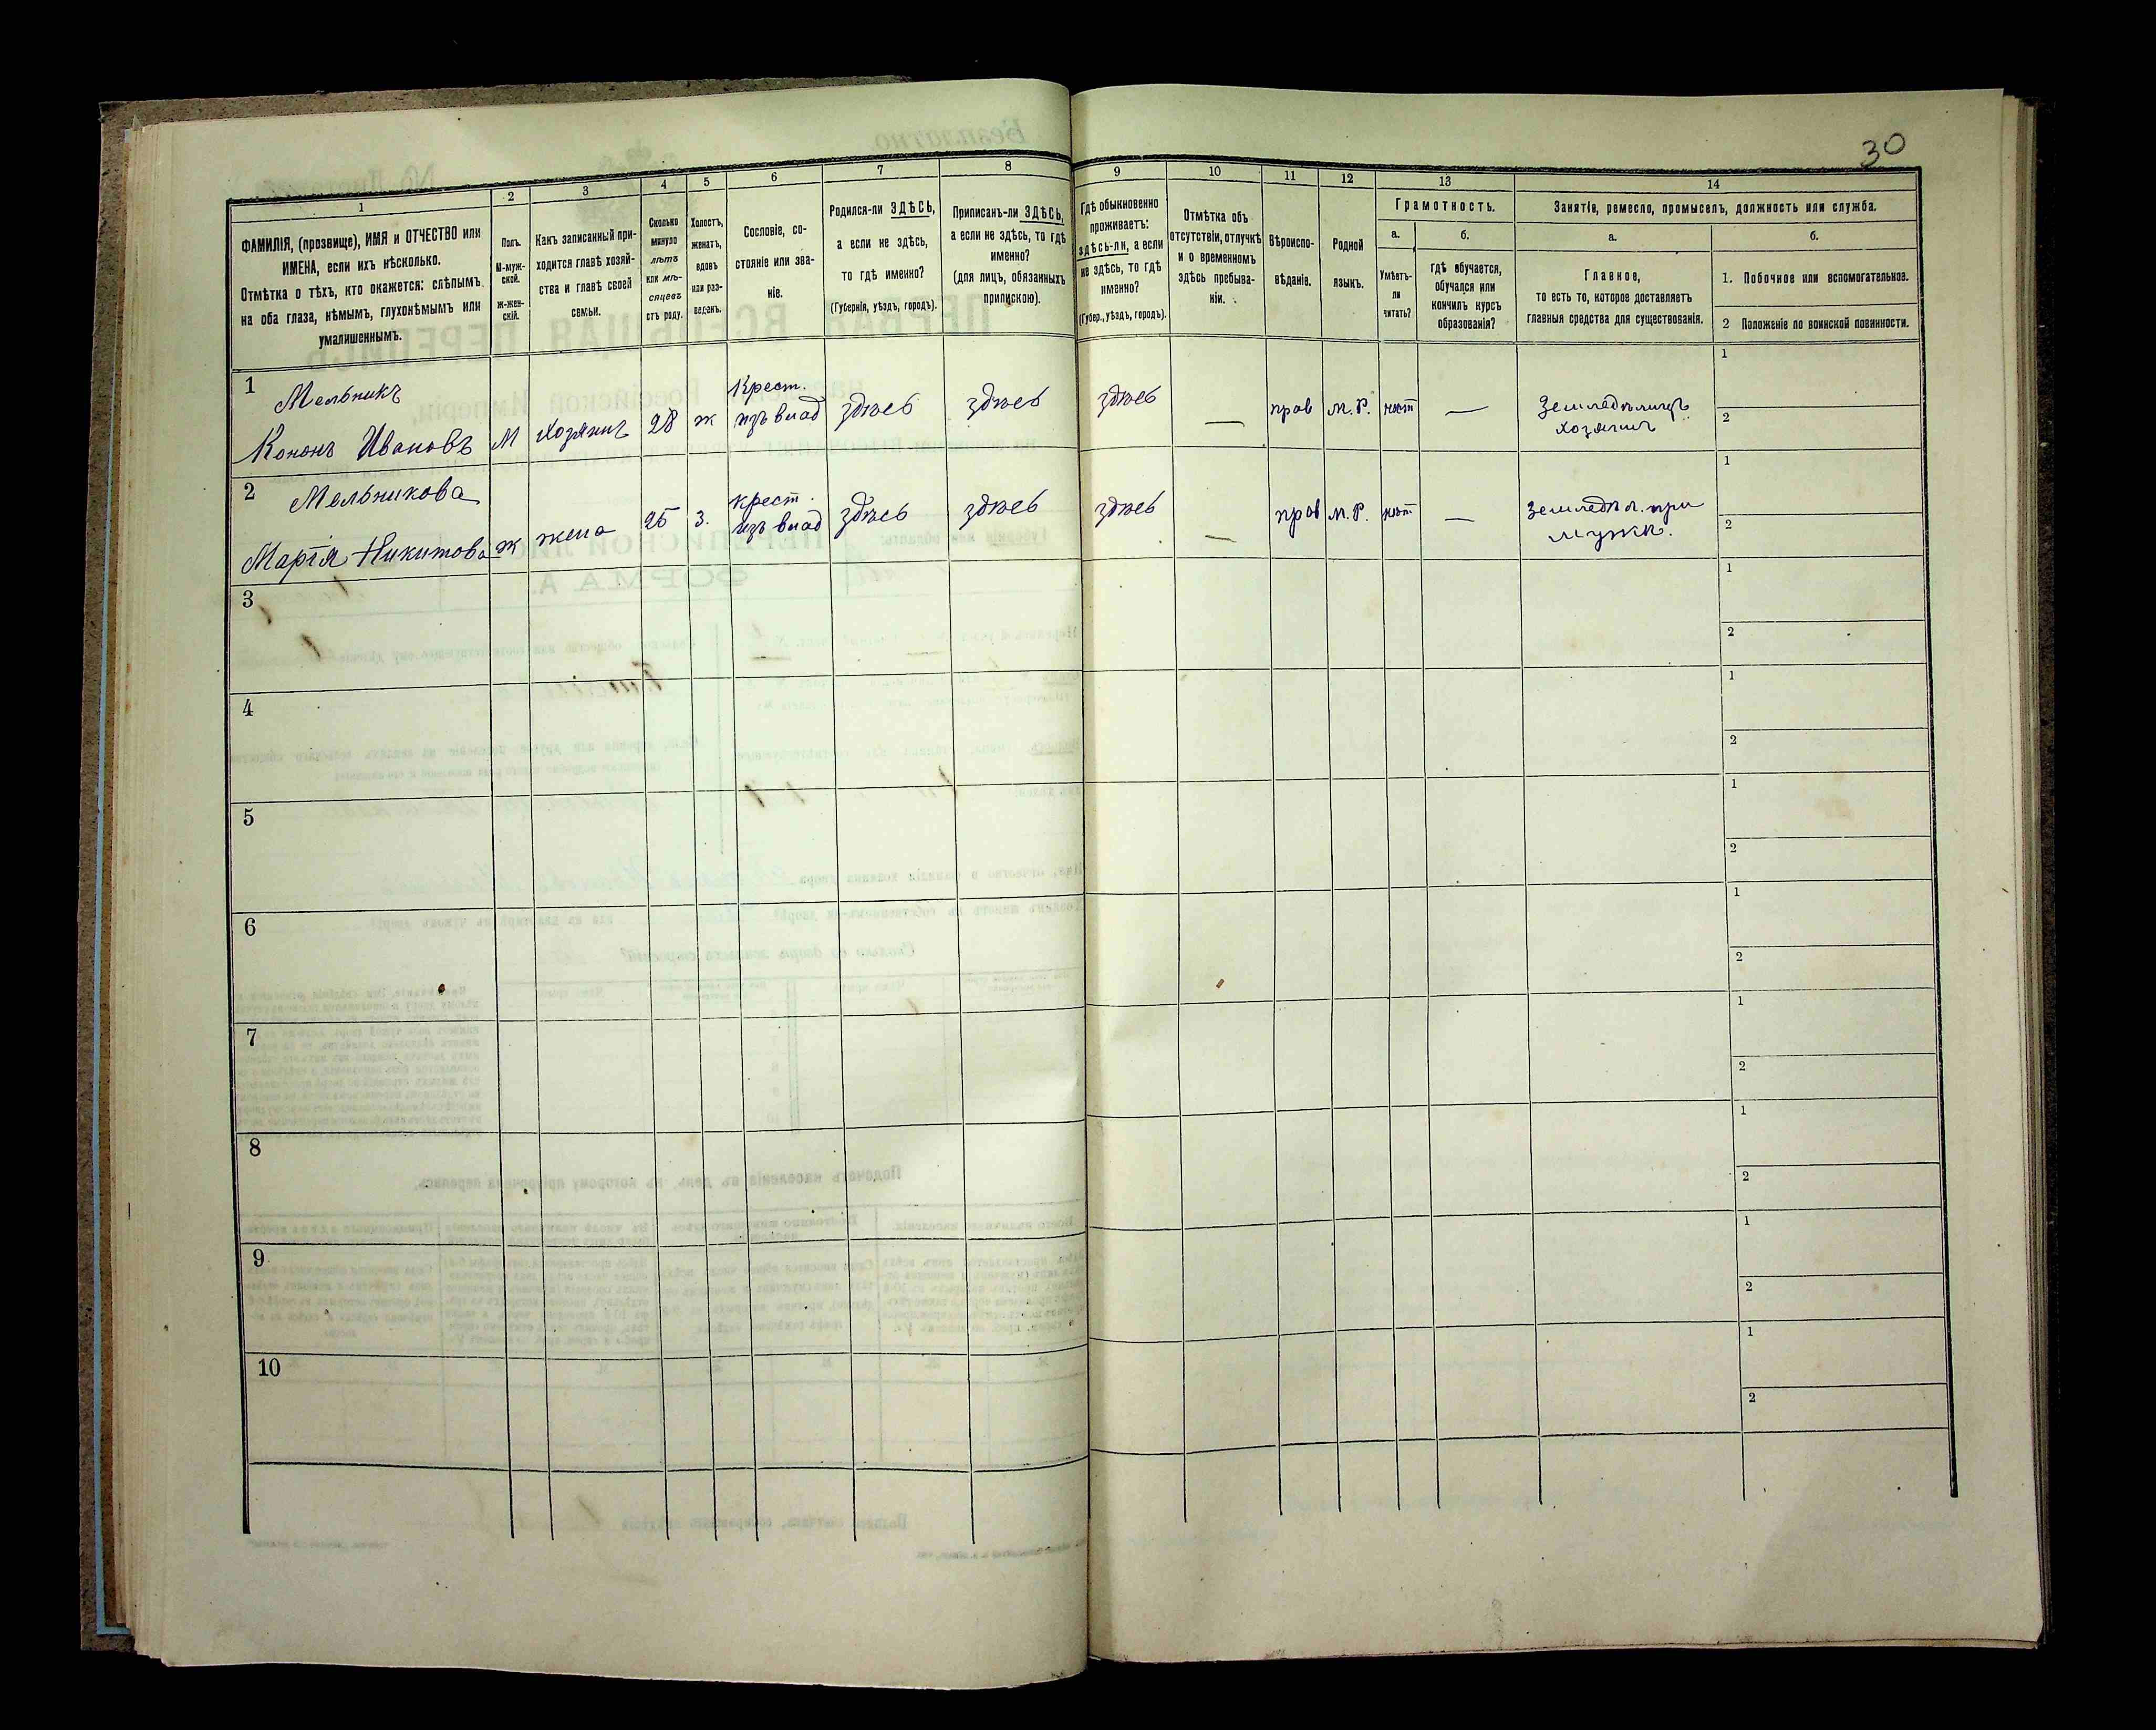 30
1
2
3
4
5
6
7
8
9
10
11
12
13
14
ФАМИЛІЯ, (прозвище), ИМЯ и ОТЧЕСТВО или
ИМЕНА, если ихъ нѣсколько.
Отмѣтка о тѣхъ, кто окажется: слѣпымъ
на оба глаза, нѣмымъ, глухонѣмымъ или
умалишеннымъ.
Полъ.
М-муж-
ской.
Ж-жен-
скій.
Какъ записанный при-
ходится главѣ хозяй-
ства и главѣ своей
семьи.
Сколько
минуло
лѣтъ
или мѣ-
сяцевъ
отъ роду.
Холостъ,
женатъ,
вдовъ
или раз-
веденъ.
Сословіе, со-
стояніе или зва-
ніе.
Родился-ли ЗДѢСЬ,
а если не здѣсь,
то гдѣ именно?
(Губернія, уѣздъ, городъ).
Приписанъ-ли ЗДѢСЬ,
а если не здѣсь, то гдѣ
именно?
(для лицъ, обязанныхъ
припискою).
Гдѣ обыкновенно
проживаетъ:
здѣсь-ли, а если
не здѣсь, то гдѣ
именно?
(Губер., уѣздъ, городъ).
Отмѣтка объ
отсутствіи, отлучкѣ
и о временномъ
здѣсь пребыва-
ніи.
Вѣроиспо-
вѣданіе.
Родной
языкъ.
Грамотность.
а.
Умѣетъ-
ли
читать?
б.
гдѣ обучается,
обучался или
кончилъ курсъ
образованія?
Занятіе, ремесло, промыселъ, должность или служба.
а.
Главное,
то есть то, которое доставляетъ
главныя средства для существованія.
б.
1. Побочное или вспомогательное.
2 Положеніе по воинской повинности.
1
Мельникъ
Кононъ Ивановъ
М
хозяинъ
28
ж
Крест.
изъ влад
здѣсь
здѣсь
здѣсь
—
прав
м. р.
нѣт
—
Земледѣлецъ
хозяинъ
1
2
2
Мельникова
Марія Никитова
ж
жена
25
з.
крест.
изъ влад
здѣсь
здѣсь
здѣсь
—
прав
м. р.
нѣт
—
Земледѣл. при
мужѣ.
1
2
3
1
2
4
1
2
5
1
2
6
1
2
7
1
2
8
1
2
9
1
2
10
1
2